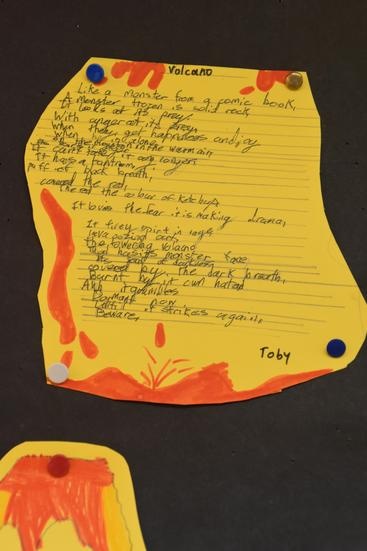 Volcano
Like a monster from a comic book,
A monster frozen in solid rock,
Looks at its prey.
With anger at its prey,
When they get happyness and joy
When
It can't take it any longer,
It has a tantrum,
puff of black breath,
covered the red,
The red the colour of ketchup,
It loves the fear it is making drama,
It firey spirit in rage
lava poring out,
the towering volcano
covered by the dark breath,
burnt by it own hatred
And it grumbles
Dormant now
Until it strikes again,
Beware,
Toby